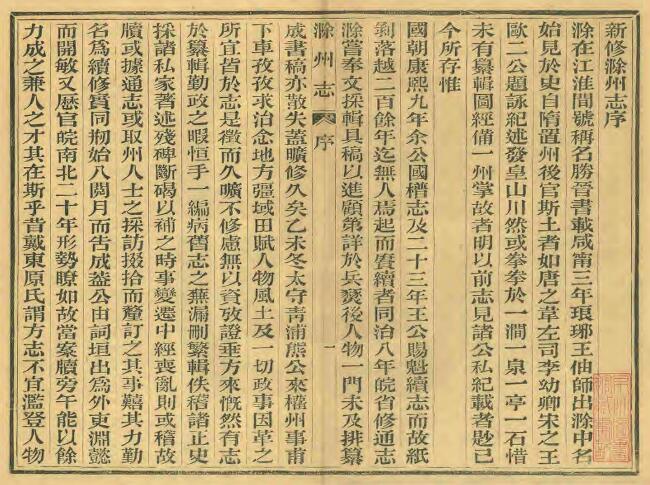 新修滁州志序
滁在江淮間號稱名勝晉書載咸甯三年琅琊王伷師出滁中名
始見於史自隋置州後官斯土者如唐之韋左司李幼卿宋之王
歐二公題詠紀述發皇山川然或拳拳於一澗一泉一亭一石惜
未有纂輯圖經備一州掌故者明以前志見諸公私紀載者尠已
今所存惟
國朝康熙九年余公國㮽志及二十三年王公賜魁續志而故紙
剝落越二百餘年迄無人焉起而賡續者同治八年皖省修通志
滁嘗奉文採輯具稿以進顧第詳於兵燹後人物一門未及排纂
滁州志 序 一
成書稿亦散失蓋曠修久矣乙未冬太守青浦熊公來權州事甫
下車孜孜求治念地方疆域田賦人物風土及一切政事因革之
所宜皆於志是徵而久曠不修慮無以資攷證垂方來慨然有志
於纂輯勤政之暇恒手一編病舊志之蕪漏刪繁輯佚稽諸正史
採諸私家著述殘碑斷碣以補之時事變遷中經喪亂則或稽故
牘或據通志或取州人士之採訪掇拾而釐訂之其事囏其力勤
名爲續修實同刱始八閱月而告成蓋公由詞垣出爲外吏淵懿
而開敏又歷官皖南北二十年形勢瞭如故當案牘旁午能以餘
力成之兼人之才其在斯乎昔戴東原氏謂方志不宜濫登人物